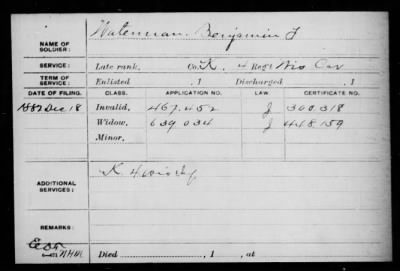 NAME OF SOLDIER: Waterman, Benjamin F
SERVICE: Late rank, Co. K, 4 Reg't Wis Cav
TERM OF SERVICE: Enlisted , 1 Discharged , 1
DATE OF FILING. CLASS. APPLICATION NO. LAW. CERTIFICATE NO.
1882 Dec 18 Invalid, 467.452 J 300.318
Widow, 639.034 J 448.159
Minor,
ADDITIONAL SERVICES: K. 4 Wis Inf
REMARKS:
NHM
Died , 1 , at